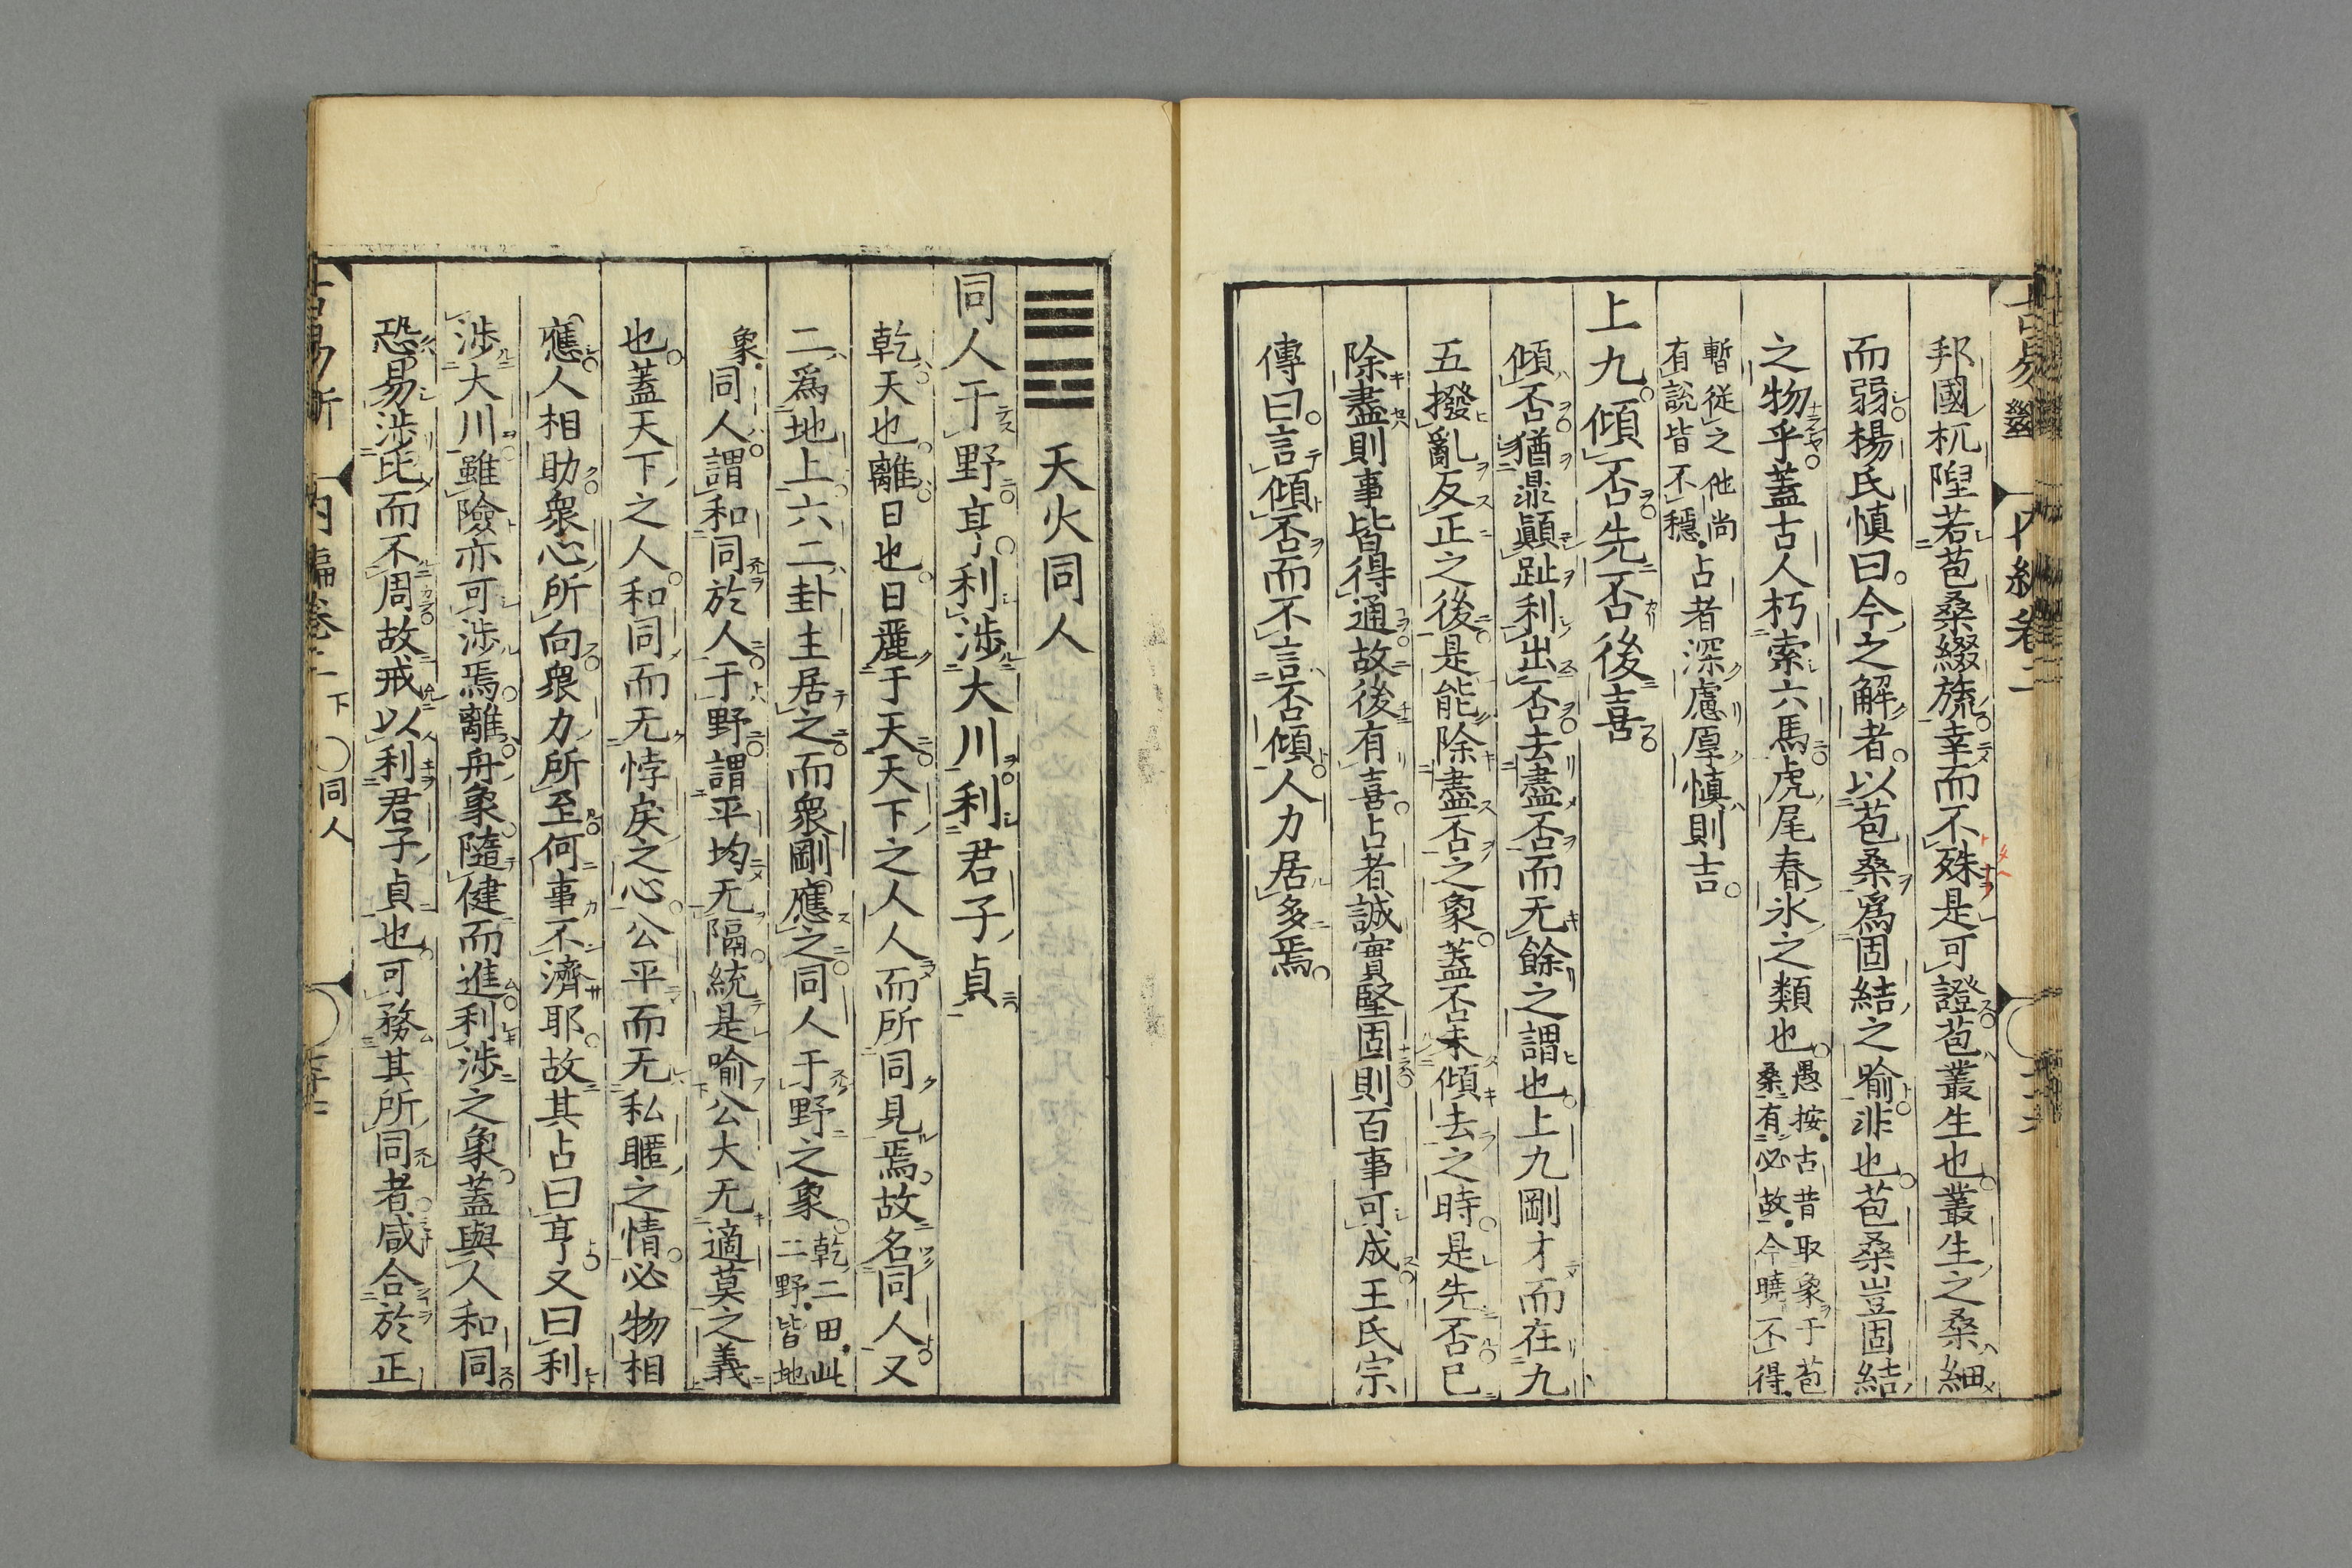 邦國杌隉若苞桑綴旒幸而不殊是可證苞叢生也叢生之桑細
而弱楊氏慎曰今之解者以苞桑爲固結之喻非也苞桑豈固結
之物乎蓋古人朽索六馬虎尾春氷之類也愚按古昔取象于苞
桑有必故今曉不得
暫從之他尚
有說皆不穩占者深慮厚慎則吉
上九傾否先否後喜
傾否猶鼎顚趾利出否去盡否而无餘之謂也上九剛才而在九
五撥亂反正之後是能除盡否之象蓋否未傾去之時是先否已
除盡則事皆得通故後有喜占者誠實堅固則百事可成王氏宗
傳曰言傾否而不言否傾人力居多焉
天火同人
同人于野亨利涉大川利君子貞
乾天也離日也日麗于天天下之人人而所同見焉故名同人又
二爲地上六二卦主居之而衆剛應之同人于野之象乾二田此
二野皆地
象同人謂和同於人于野謂平均无隔統是喻公大无適莫之義
也蓋天下之人和同而无悖戾之心公平而无私暱之情必物相
應人相助衆心所向衆力所至何事不濟耶故其占曰亨又曰利
涉大川雖險亦可涉焉離舟象隨健而進利涉之象蓋與人和同
恐易涉比而不周故戒以利君子貞也可務其所同者咸合於正
内編卷二
下
同人